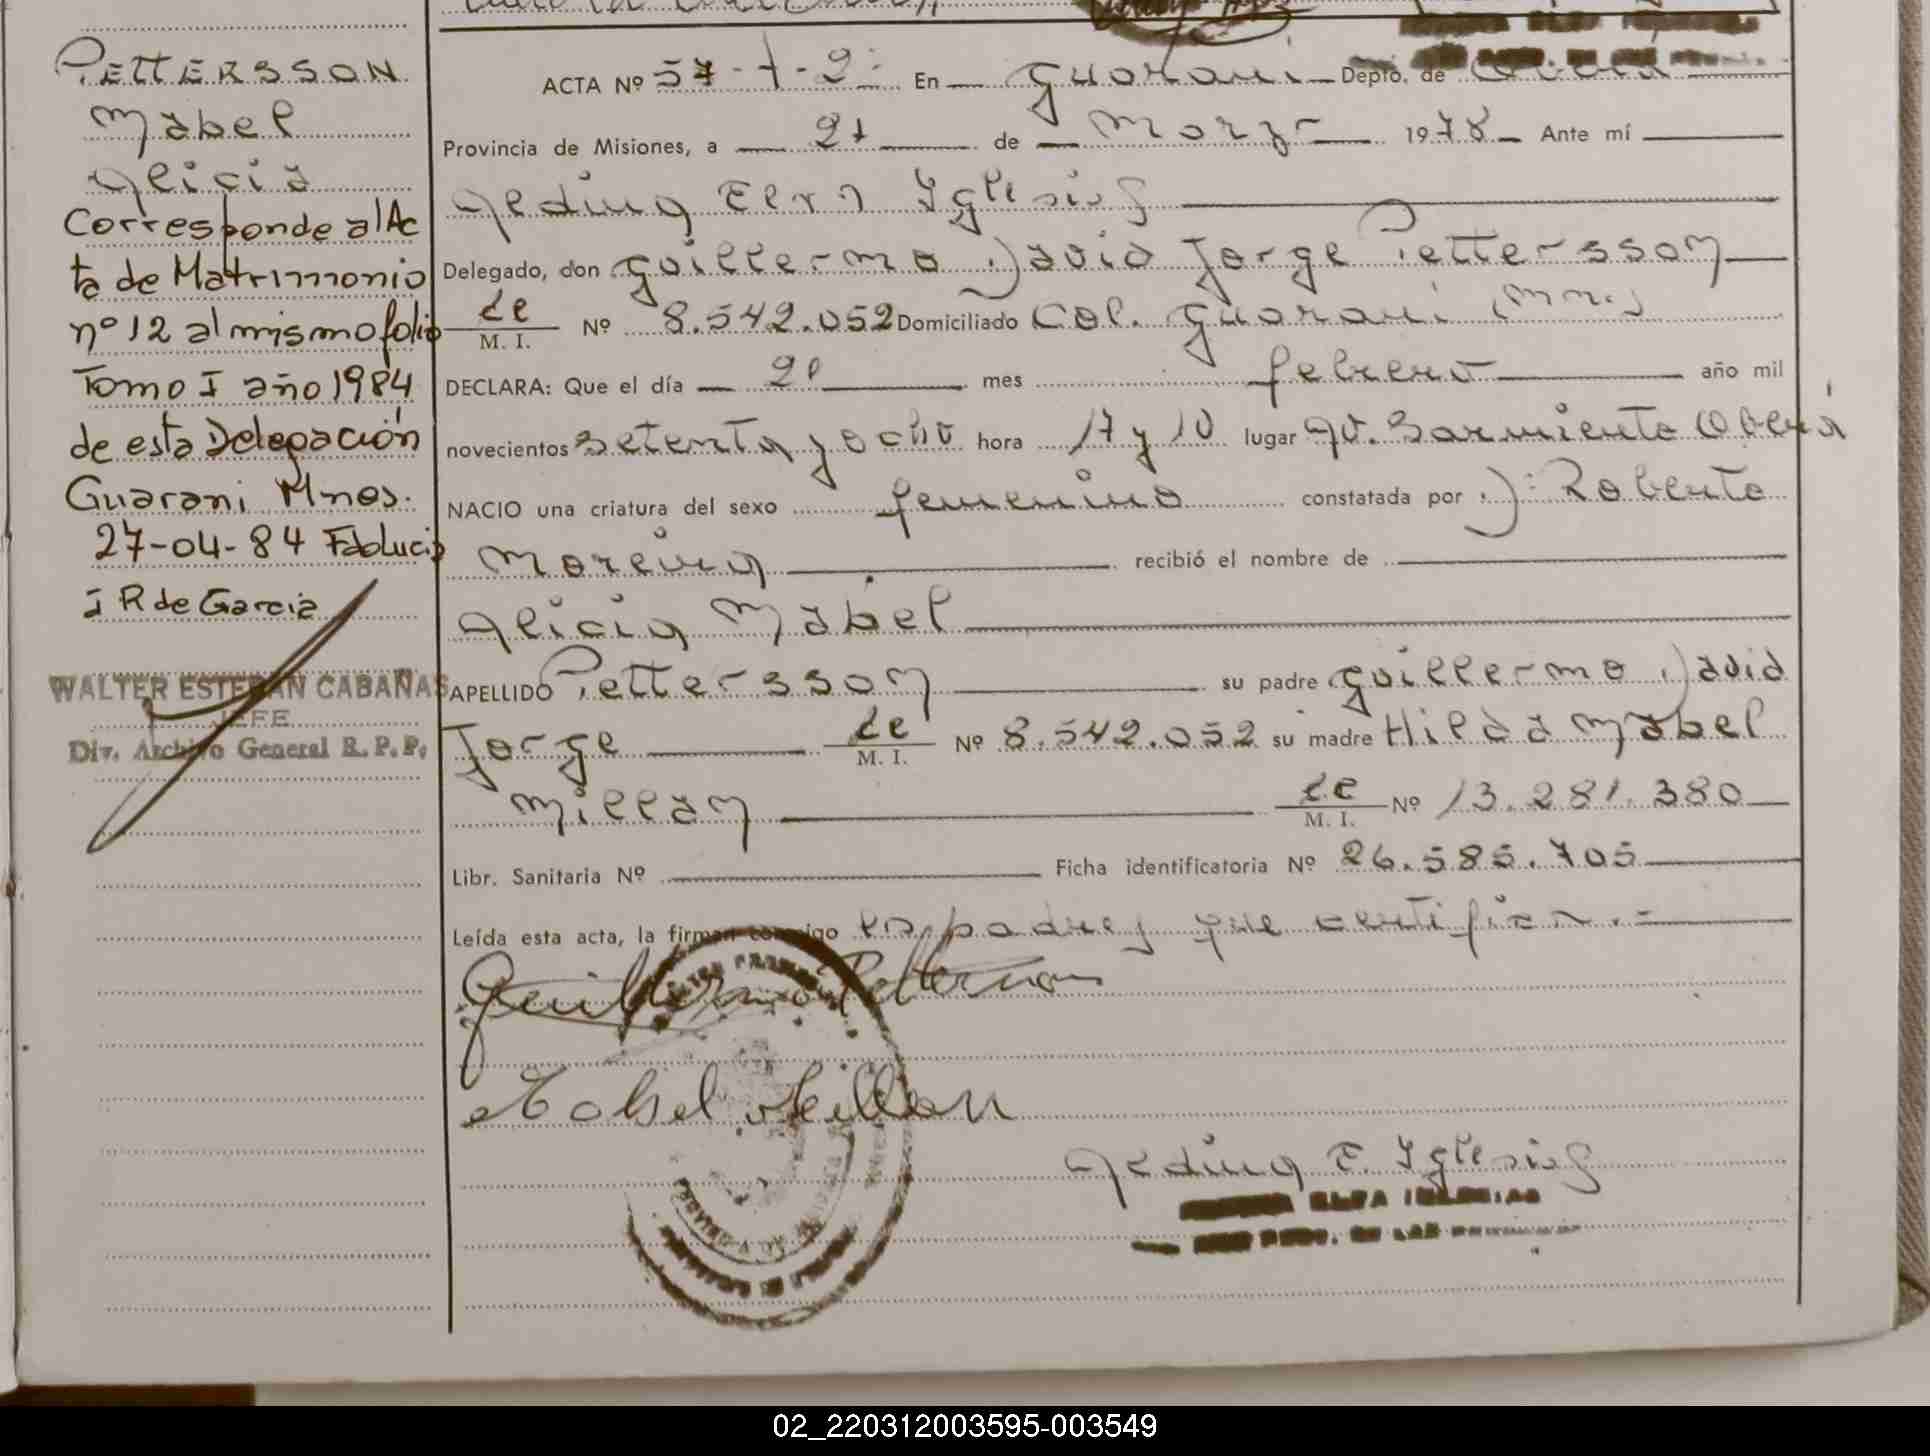 PETTERSSON
Mabel
Alicia
Corresponde al Ac
ta de Matrimonio
nº 12 al mismo folio
Tomo I año 1984
de esta Delegación
Guarani Mnes.
27-04-84
I R de Garcia
WALTER ESTEBAN CABAÑAS
JEFE
Div. Archivo General R. P. P.
ACTA Nº 57-1-2: En Guarani Depto. de Oberá
Provincia de Misiones, a 21 de Marzo 1978 Ante mí
Iglesias
Delegado, don Guillermo David Jorge Pettersson
LE M. I. Nº 8.542.052 Domiciliado Col. Guarani Mnes
DECLARA: Que el día mes febrero año mil
novecientos setenta y ocho hora 17 y 10 lugar Av. Sarmiento Oberá
NACIO una criatura del sexo femenino constatada por D: Roberto
Moreira recibió el nombre de
Alicia Mabel
APELLIDO Pettersson su padre Guillermo David
Jorge LE M. I. Nº 8.542.052 su madre Hilda Mabel
Millan M. I. Nº 13.281.380
Libr. Sanitaria Nº Ficha identificatoria Nº 26.585.705
Leída esta acta, la firman conmigo los padres que certifican.=
Guillermo Pettersson
Mabel Millan
E. Iglesias
ELFA IGLESIAS
02_220312003595-003549